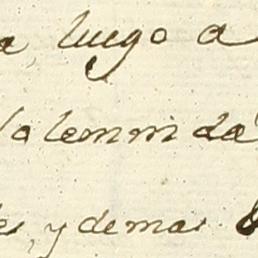 a, luego a
Solemnida
es, y demas